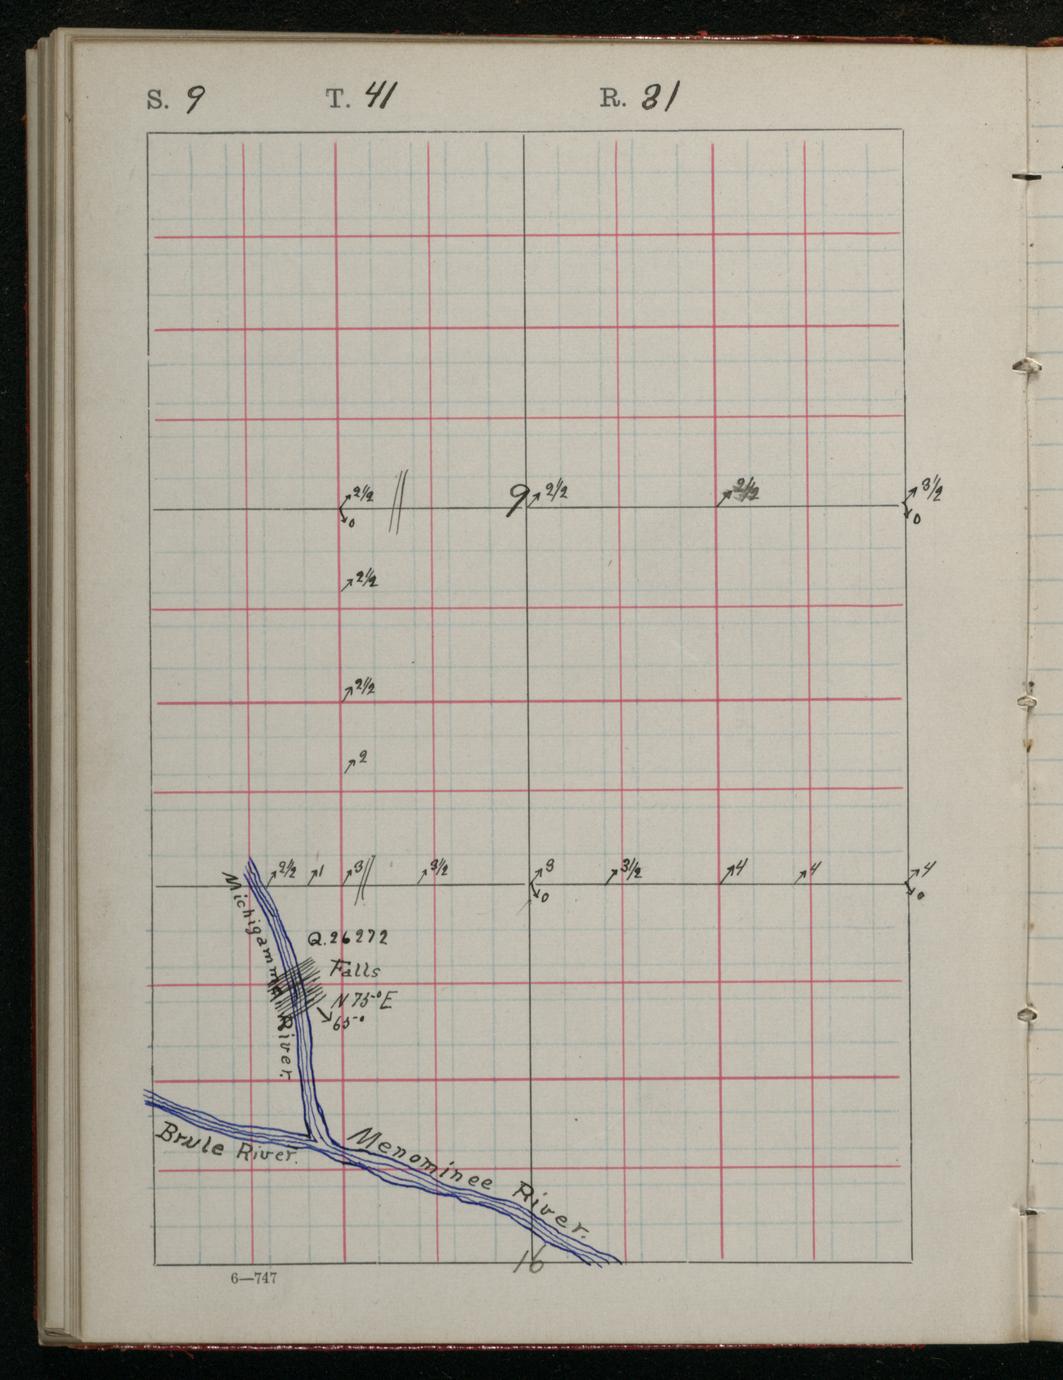 S. 9 T. 41 R. 31
2½ 9 2½ 2½ 3½
0 0
2½
2½
2
2½ 1 3 3½ 3 3½ 4 4 4
0 0
Michigamme River.
Q. 26272
Falls
N 75° E
65°
Brule River.
Menominee River.
16
6—747